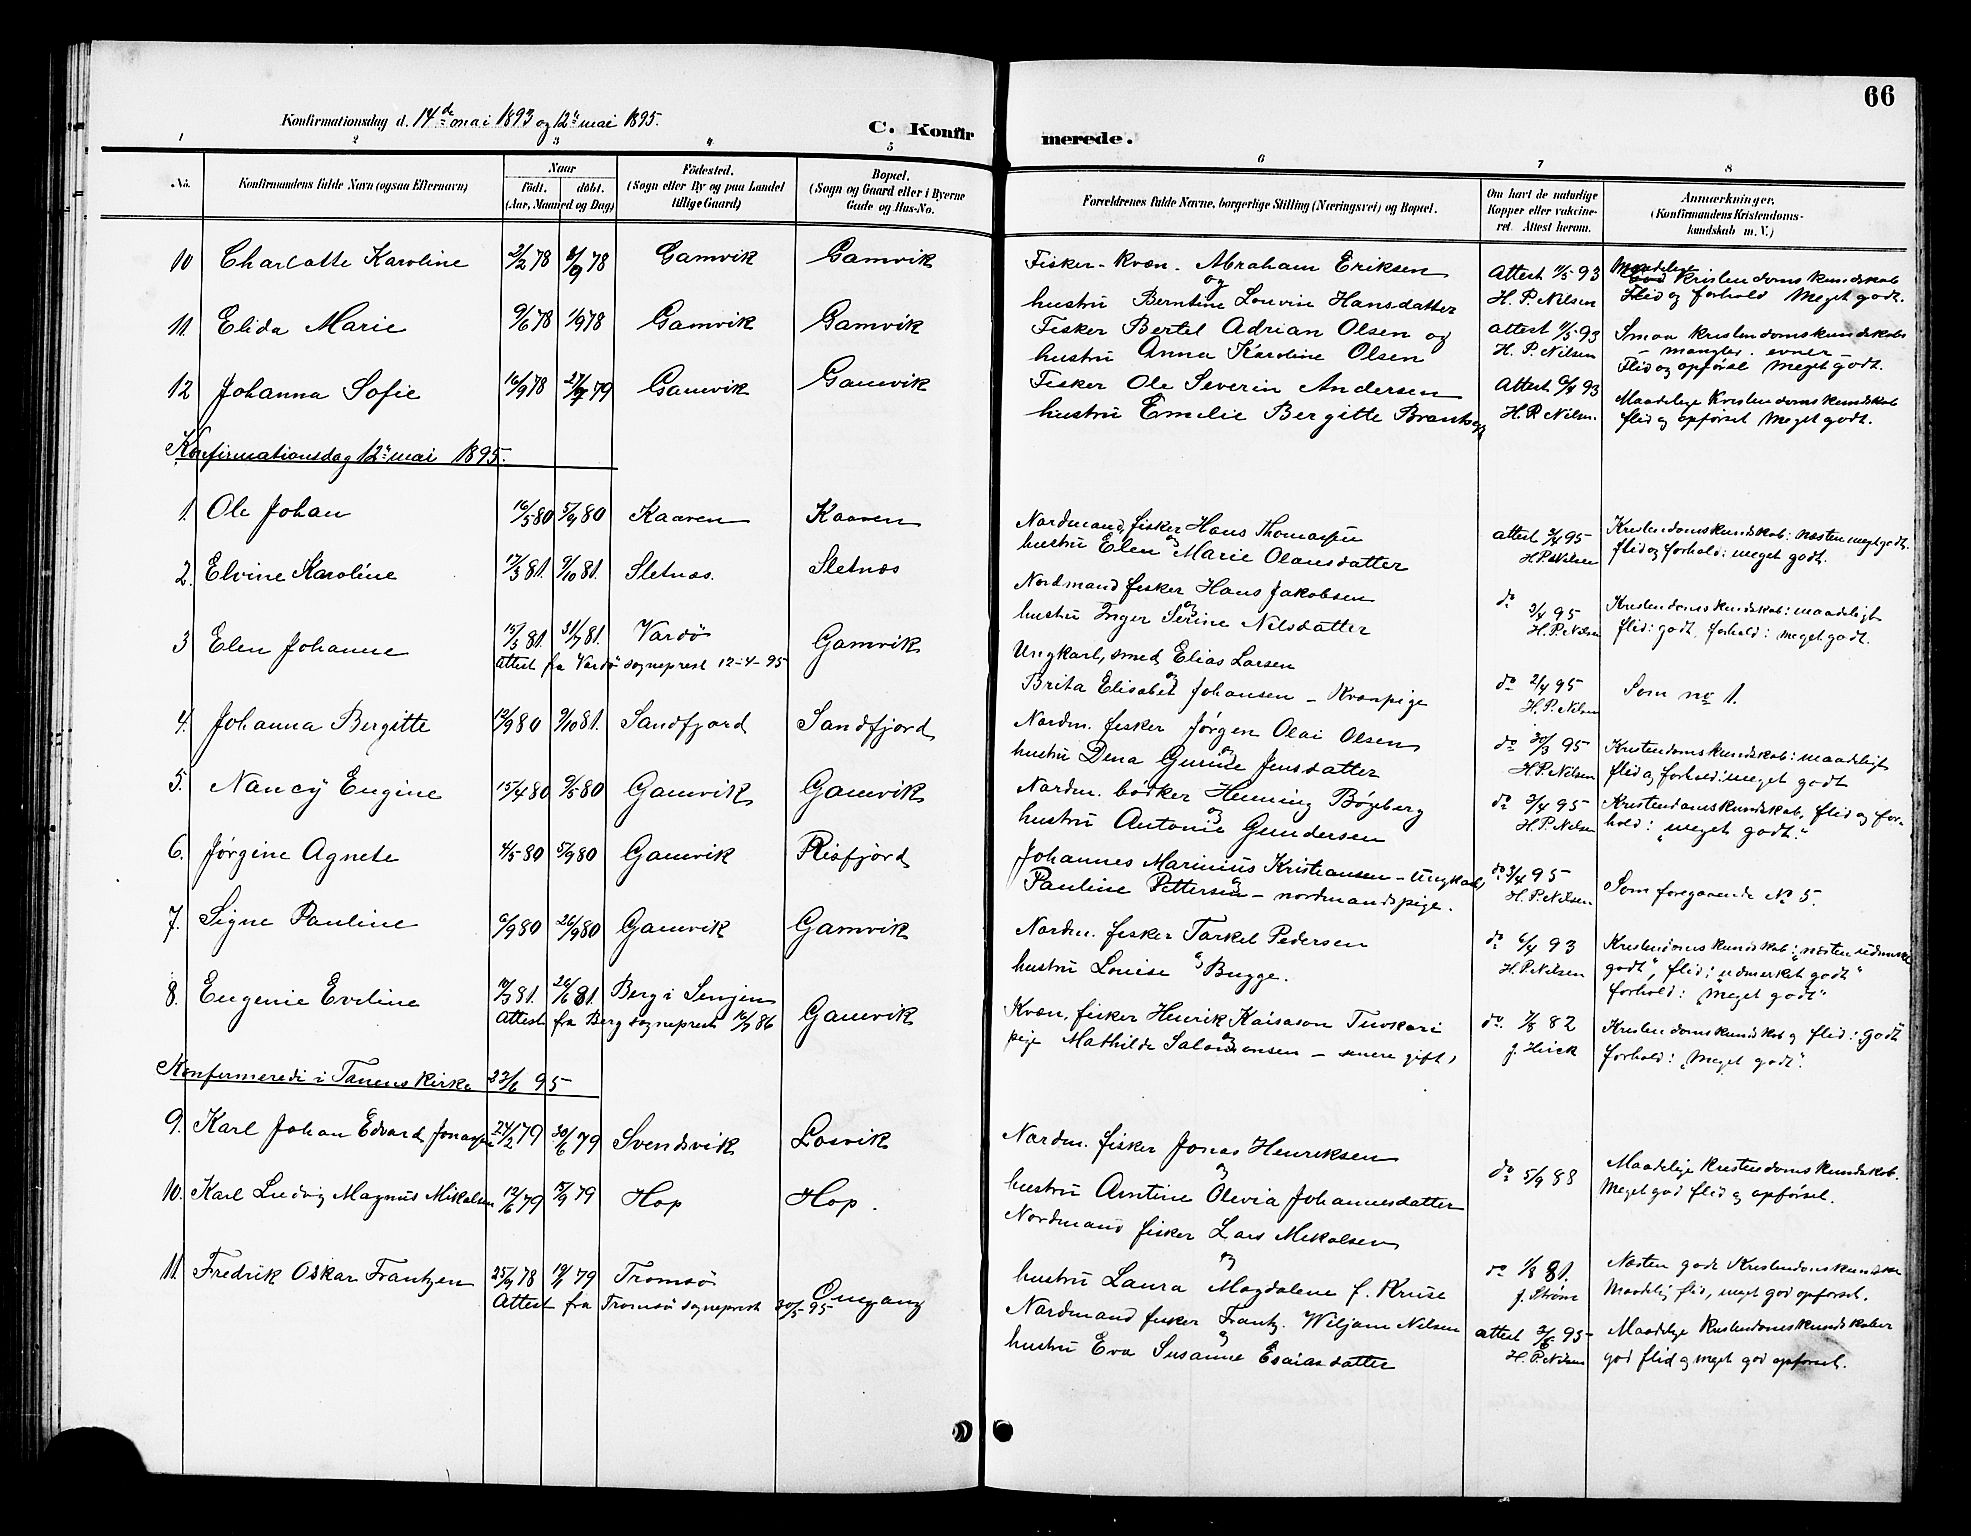 66
Konfirmationsdag d. 14de mai 1893 og 12te mai 1895.
C. Konfirmerede.
1 2 3 4 5 6 7 8
No. Konfirmandens fulde Navn (ogsaa Efternavn) Naar Födt. döbt. (Aar, Maaned og Dag) Födested. (Sogn eller By og paa Landet tillige Gaard) Bopæl. (Sogn og Gaard eller i Byerne Gade og Hus-No. Forældrenes fulde Navne, borgerlige Stilling (Næringsvei) og Bopæl. Om havt de naturlige Kopper eller vakcineret. Attest herom. Anmærkninger. (Konfirmandens Kristendomskundskab m. V.)
10 Charlotte Karoline 2/2 78 8/9 78 Gamvik Gamvik Fisker - Kvæn. Abraham Eriksen Attest 11/5 93 Maadelig Kristendomskundskab
og hustru Berntine Lovise Hansdatter H. P. Nilsen Flid og forhold Meget godt.
11. Elida Marie 9/6 78 1/9 78 Gamvik Gamvik Fisker Bertel Adrian Olsen og attest 11/5 93 Smaa Kristendomskundskab
hustru Anna Karoline Olsen H. P. Nilsen – mangler evner –
Flid og opførsel Meget godt.
12 Johanna Sofie 16/9 78 27/7 79 Gamvik Gamvik Fisker Ole Severin Andersen Attest 6/4 93 Maadelige Kristendomskundskab
hustru Emelie Bergitte H. P. Nilsen. flid og opførsel Meget godt.
Konfirmationsdag 12te mai 1895.
1. Ole Johan 16/5 80 5/9 80 Kaaven Kaaven Nordmand, fisker Hans Thomassen attest 3/4 95 Kristendomskundskab: næsten meget godt.
og hustru Elen Marie Olausdatter H. P. Nilsen flid og forhold: meget godt.
2. Elvine Karoline 17/3 81. 9/10 81. Sletnæs. Sletnæs Nordmand fisker Hans Jakobsen do 3/4 95 Kristendomskundskab: maadeligt
og hustru Inger Serine Nilsdatter H. P. Nilsen flid: godt, forhold: meget godt.
3 Elen Johanne 15/3 81. 31/7 81. Vardö Gamvik Ungkarl, smed, Elias Larsen
attest fra Vardö sogneprest 12-4-95
og Brita Elisabet Johansen – Kvænpige do 2/4 95 H. P. Nilsen Som no 1.
4. Johanna Bergitte 12/9 80 9/10 81. Sandfjord Sandfjord Nordm. fisker Jörgen Olai Olsen do 30/3 95 Kristendomskundskab: maadeligt
og hustru Dena Gurine Jensdatter H. P. Nilsen flid og forhold: meget godt
5. Nancÿ Eugine 15/4 80 9/5 80 Gamvik Gamvik Nordm. bödker Henning Bözeberg do 3/4 95 Kristendomskundskab, flid og for-
og hustru Antonie Gundersen H. P. Nilsen hold: "meget godt".
6. Jörgine Agnete 4/5 80 5/9 80 Gamvik Risfjord Johannes Marinius Kristiansen – Ungkarl, do 3/4 95
og Pauline Pettersen – nordmandspige. H. P. Nilsen Som foregaaende No 5.
7. Signe Pauline 6/9 80 26/9 80 Gamvik Gamvik Nordm. fisker Tarkel Pedersen do 6/4 93 Kristendomskundskab: "næsten udmærket
og hustru Louise Bugge. H. P. Nilsen godt", flid: udmerket godt"
forhold: "Meget godt"
8. Eugenie Eveline 10/3 81. 26/6 81. Berg i Senjen Gamvik Kvæn, fisker Henrik Kaisason Tuvkari do. 7/8 82 Kristendomskundskab og flid: godt
Attest fra Berg sogneprest 16/7 86
og pige Mathilde Salomonsen – senere gift, forhold: "Meget godt".
Konfermeredi i Tanens Kirke 23/6 95
9. Karl Johan Edvard Jonassen 24/2 79 30/6 79 Svendsvik Losvik Nordm. fisker Jonas Henriksen
og hustru Amtine Olevia Johannesdatter do 5/9 88 Maadelige Kristendomskundskab.
Meget god flid og opförsel.
10. Karl Ludvig Magnus Mikalsen 12/6 79 8/9 79 Hop Hop. Nordmand fisker Lars Mikalsen
og hustru Laura Magdalene f. Kruse do 1/8 81. J. Ström Næsten gode Kristendomskundskab
Maadelig flid, meget god opförsel.
11. Fredrik Oskar Frantzen 25/9 78 19/1 79 Tromsö Omgang Nordmand fisker Frantz Wiljam Nilsen attest 3/6 95 Maadelige Kristendomskundskaber
Attest fra Tromsö sogneprest 30/5 95
og hustru Eva Susanne Esaiasdatter H. P. Nilsen god flid og meget god opförsel.